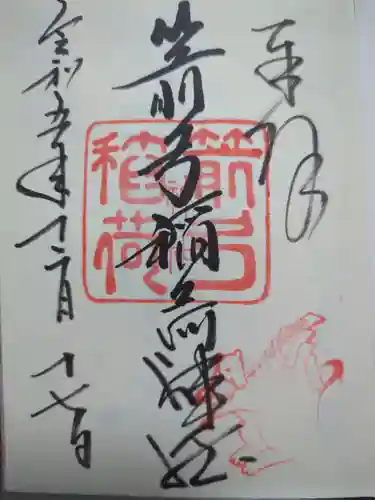 奉拝
箭弓稲荷神社
箭弓稲荷
令和五年十二月十七日